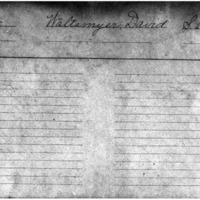 Waltemyer, David